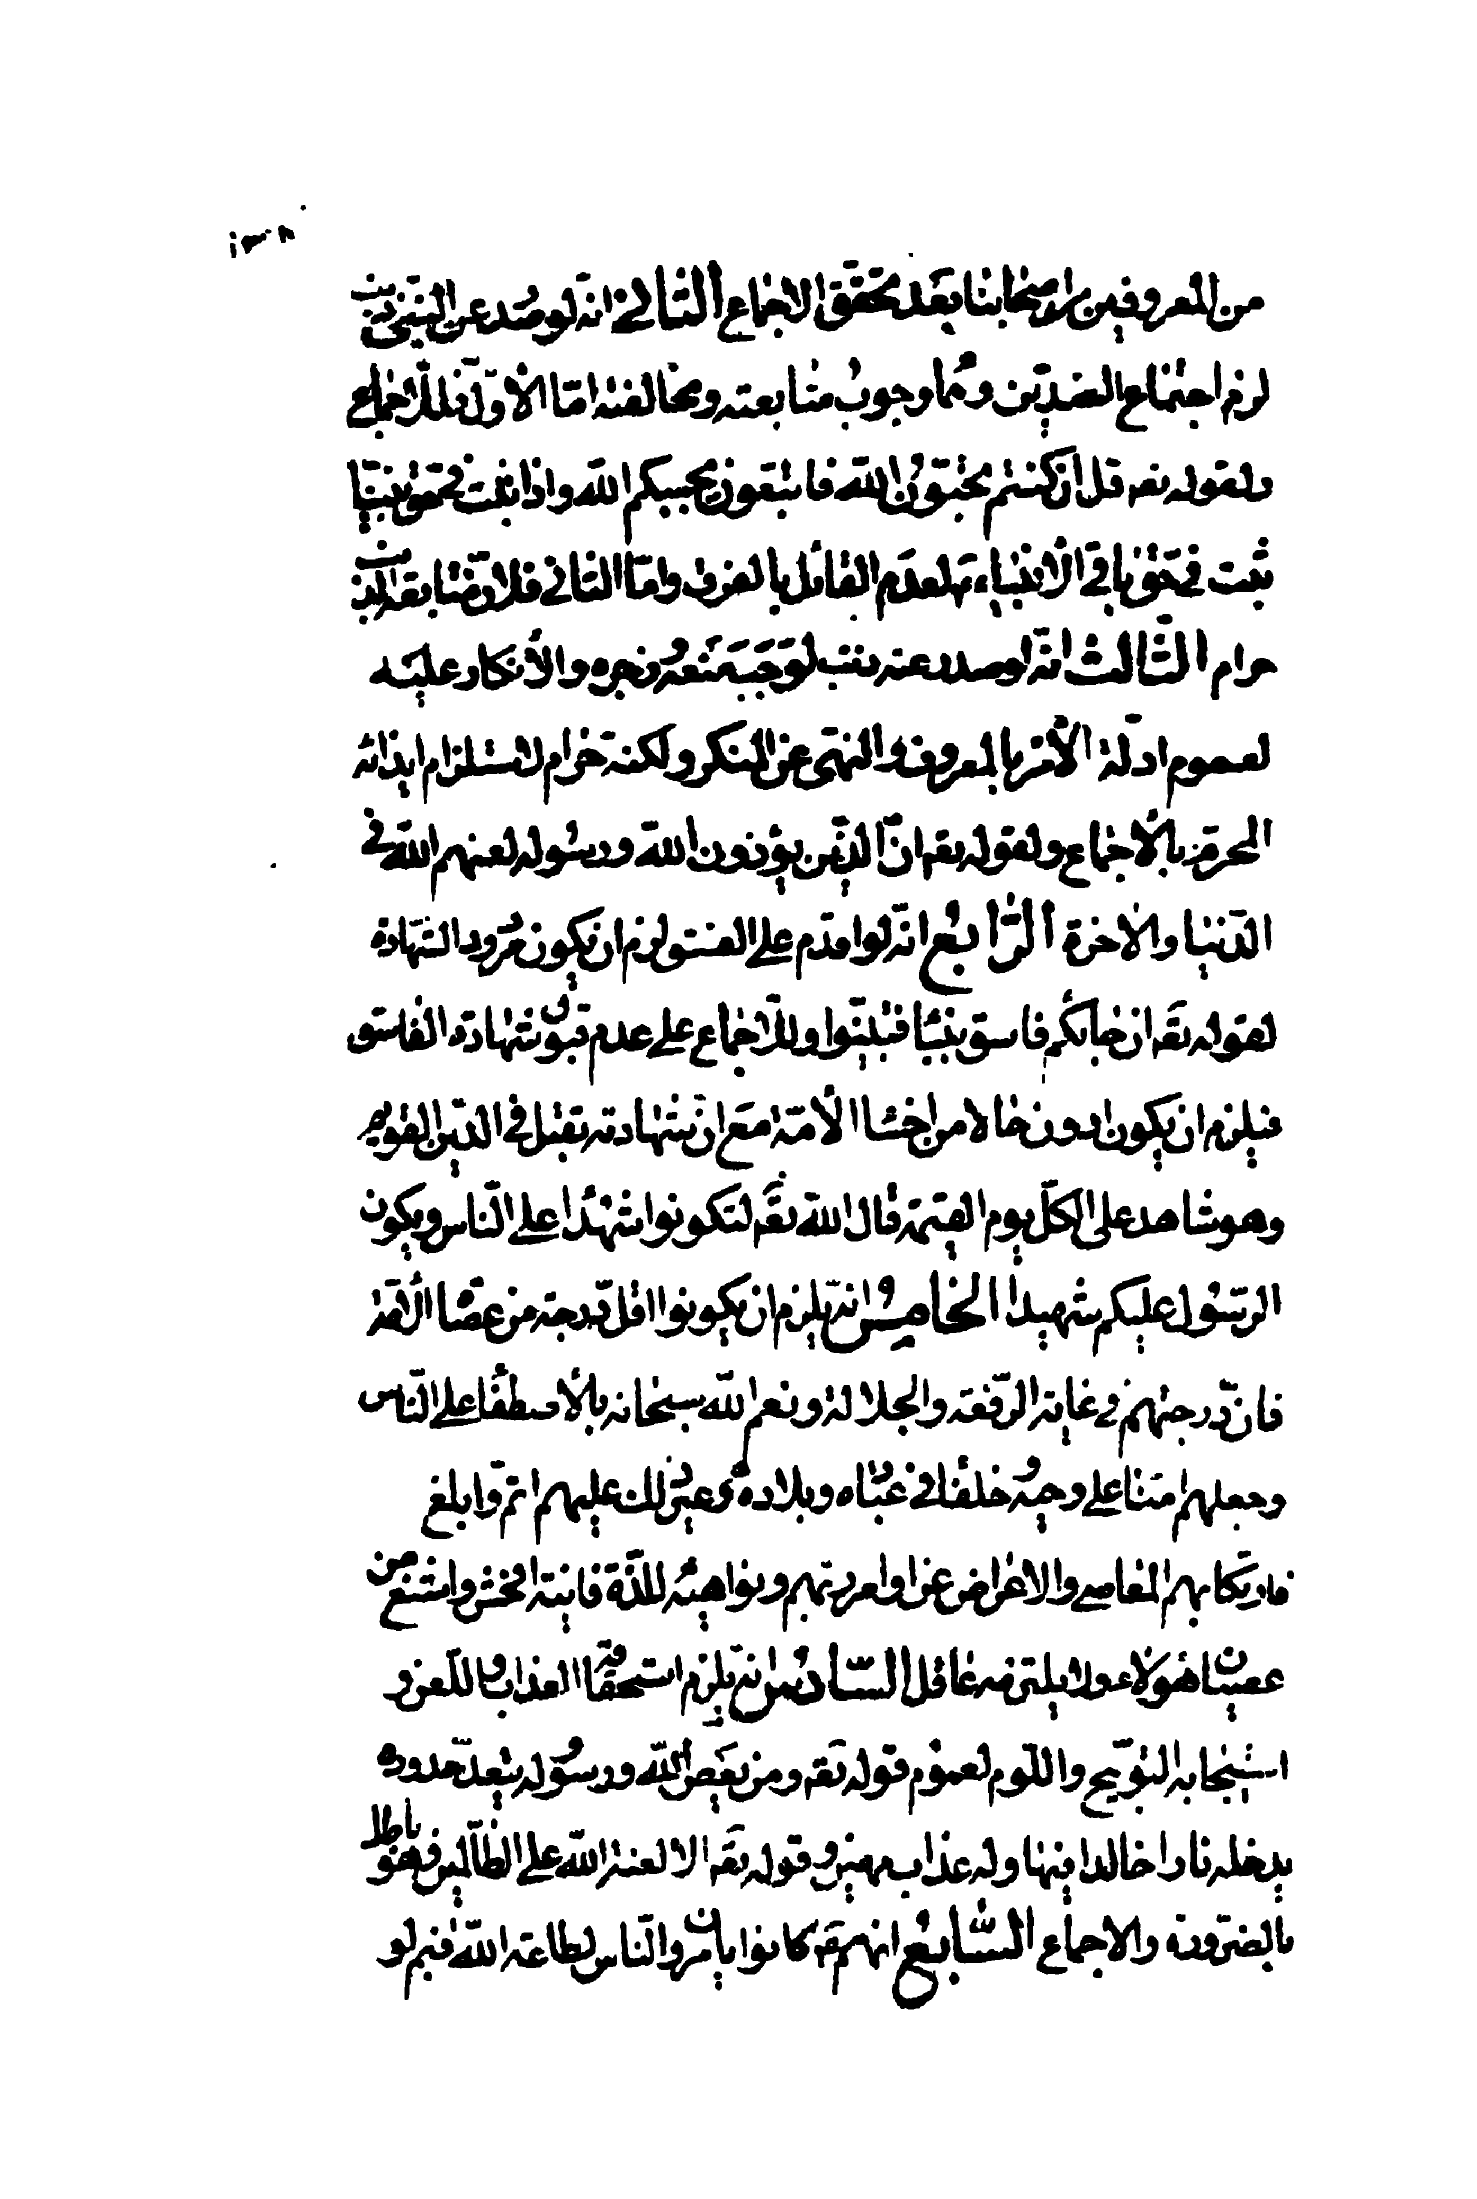 من المعروفين من اصحابنا بعد تحقق الاجماع الثاني انه لو صدر عن النبي ذنب
لزم اجتماع الضدين وهما وجوب متابعته ومخالفته اما الاول فللاجماع
ولقوله تعه قل ان كنتم تحبون الله فاتبعوني يحببكم الله واذا ثبت في حق نبينا
ثبت في حق باقي الانبياء لعدم القائل بالفرق واما الثاني فلان متابعة المذنب
حرام الثالث انه لو صدر عنه ذنب لوجب منعه وزجره والانكار عليه
لعموم ادلة الامر بالمعروف والنهي عن المنكر ولكنه حرام لاستلزام ايذائه
المحرم بالاجماع ولقوله تعه ان الذين يؤذون الله ورسوله لعنهم الله في
الدنيا والاخرة الرابع انه لو اقدم على الفسق لزم ان يكون مردود الشهادة
لقوله تعه ان جاءكم فاسق بنبأ فتبينوا وللاجماع على عدم قبول شهادة الفاسق
فيلزم ان يكون ادون حالا من اخشا الامة مع ان شهادته تقبل في الدين القويم
وهو شاهد على الكل يوم القيمة قال الله تعه لتكونوا شهداء على الناس ويكون
الرسول عليكم شهيدا الخامس انه يلزم ان يكونوا اقل درجة من عصاة الامة
فان درجتهم في غاية الرفعة والجلالة ونعم الله سبحانه بالاصطفاء على الناس
وجعلهم امناء على وحيه وخلفاء في عباده وبلاده وغير ذلك عليهم اتم وابلغ
فارتكابهم المعاصي والاعراض عن اوامر ربهم ونواهيه للذة فانية افحش واشنع من
عصيان هؤلاء ولا يلتزمه عاقل السادس انه يلزم استحقاقه العذاب واللعن و
استيجابه التوبيخ واللوم لعموم قوله تعه ومن يعص الله ورسوله ويتعد حدوده
يدخله نارا خالدا فيها وله عذاب مهين وقوله تعه الا لعنة الله على الظالمين وهو باطل
بالضرورة والاجماع السابع انهم كانوا يامرون الناس لطاعة الله فهم لو